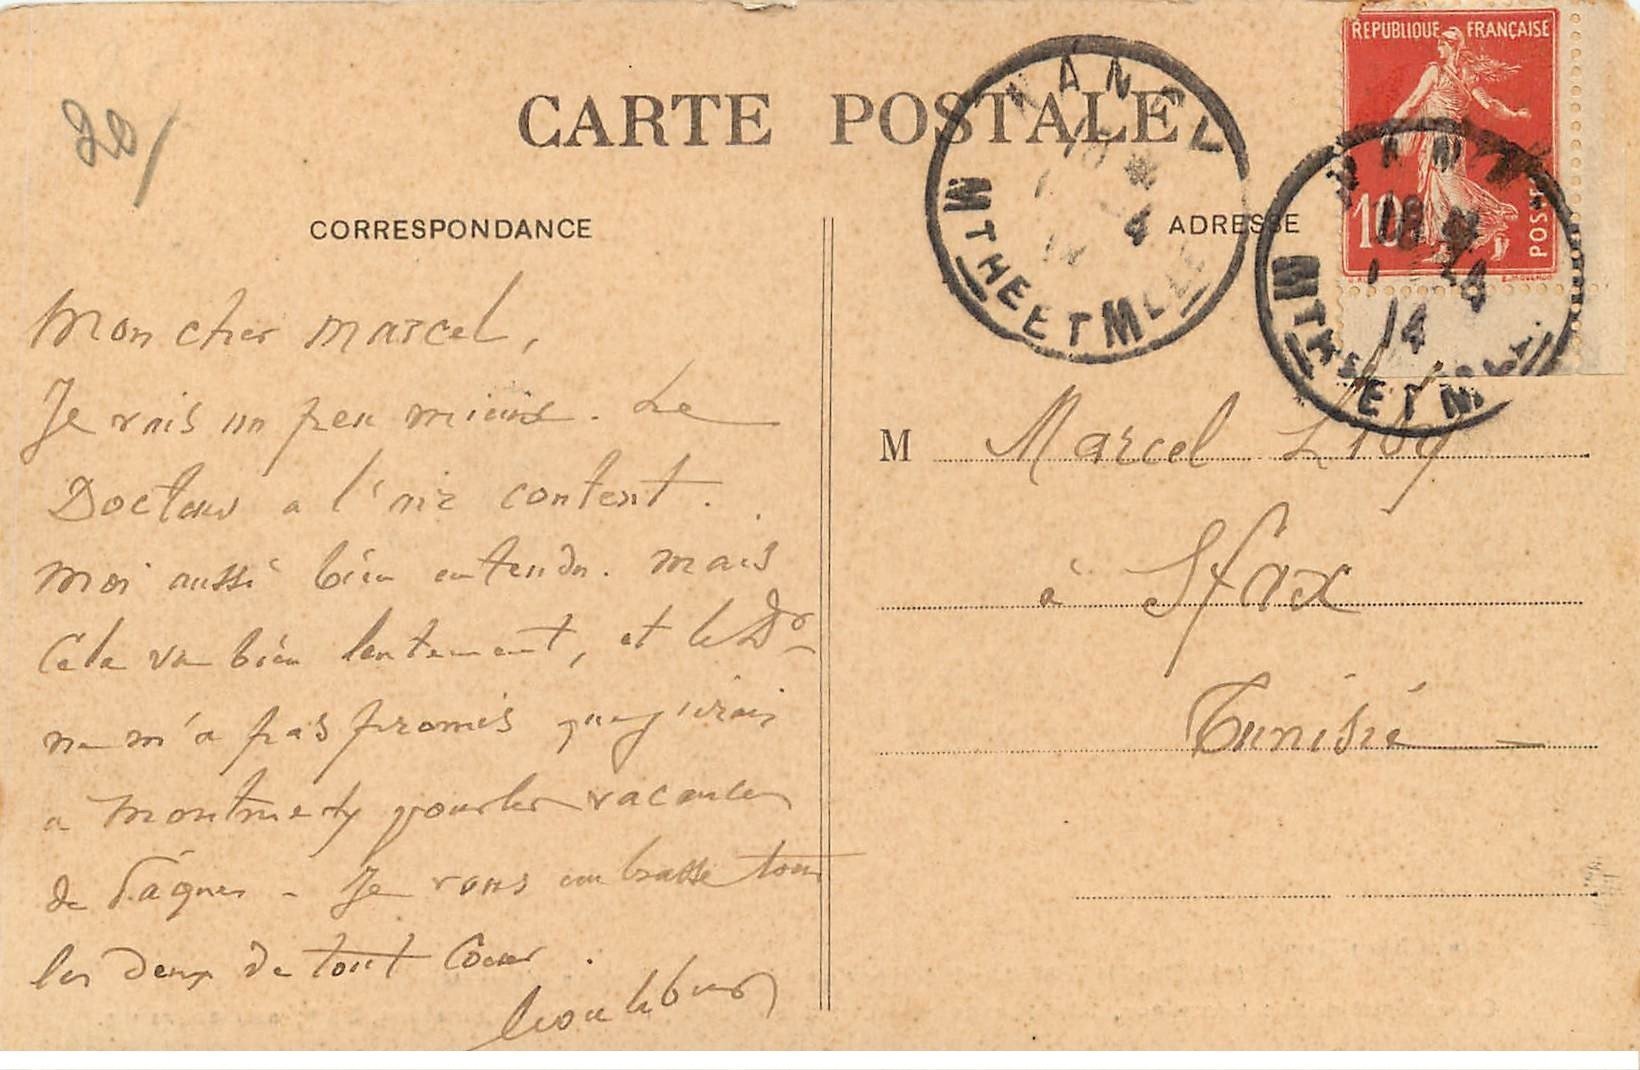 20/
CARTE POSTALE
RÉPUBLIQUE FRANÇAISE
10
POSTES
NANCY
18 *
1 - 4
14
MTHE ET MLLE
NANCY
18 *
1 - 4
14
MTHE ET M
CORRESPONDANCE
ADRESSE
Mon cher Marcel,
Je vais un peu mieux. Le
Docteur a l'air content.
Moi aussi bien entendu. Mais
Cela va bien lentement, et le Dr
ne m'a pas promis que j'irais
a Montmedy pour les vacances
de Pâques - Je vous embrasse tous
les deux de tout Coeur.
M Marcel
à Sfax
Tunisie